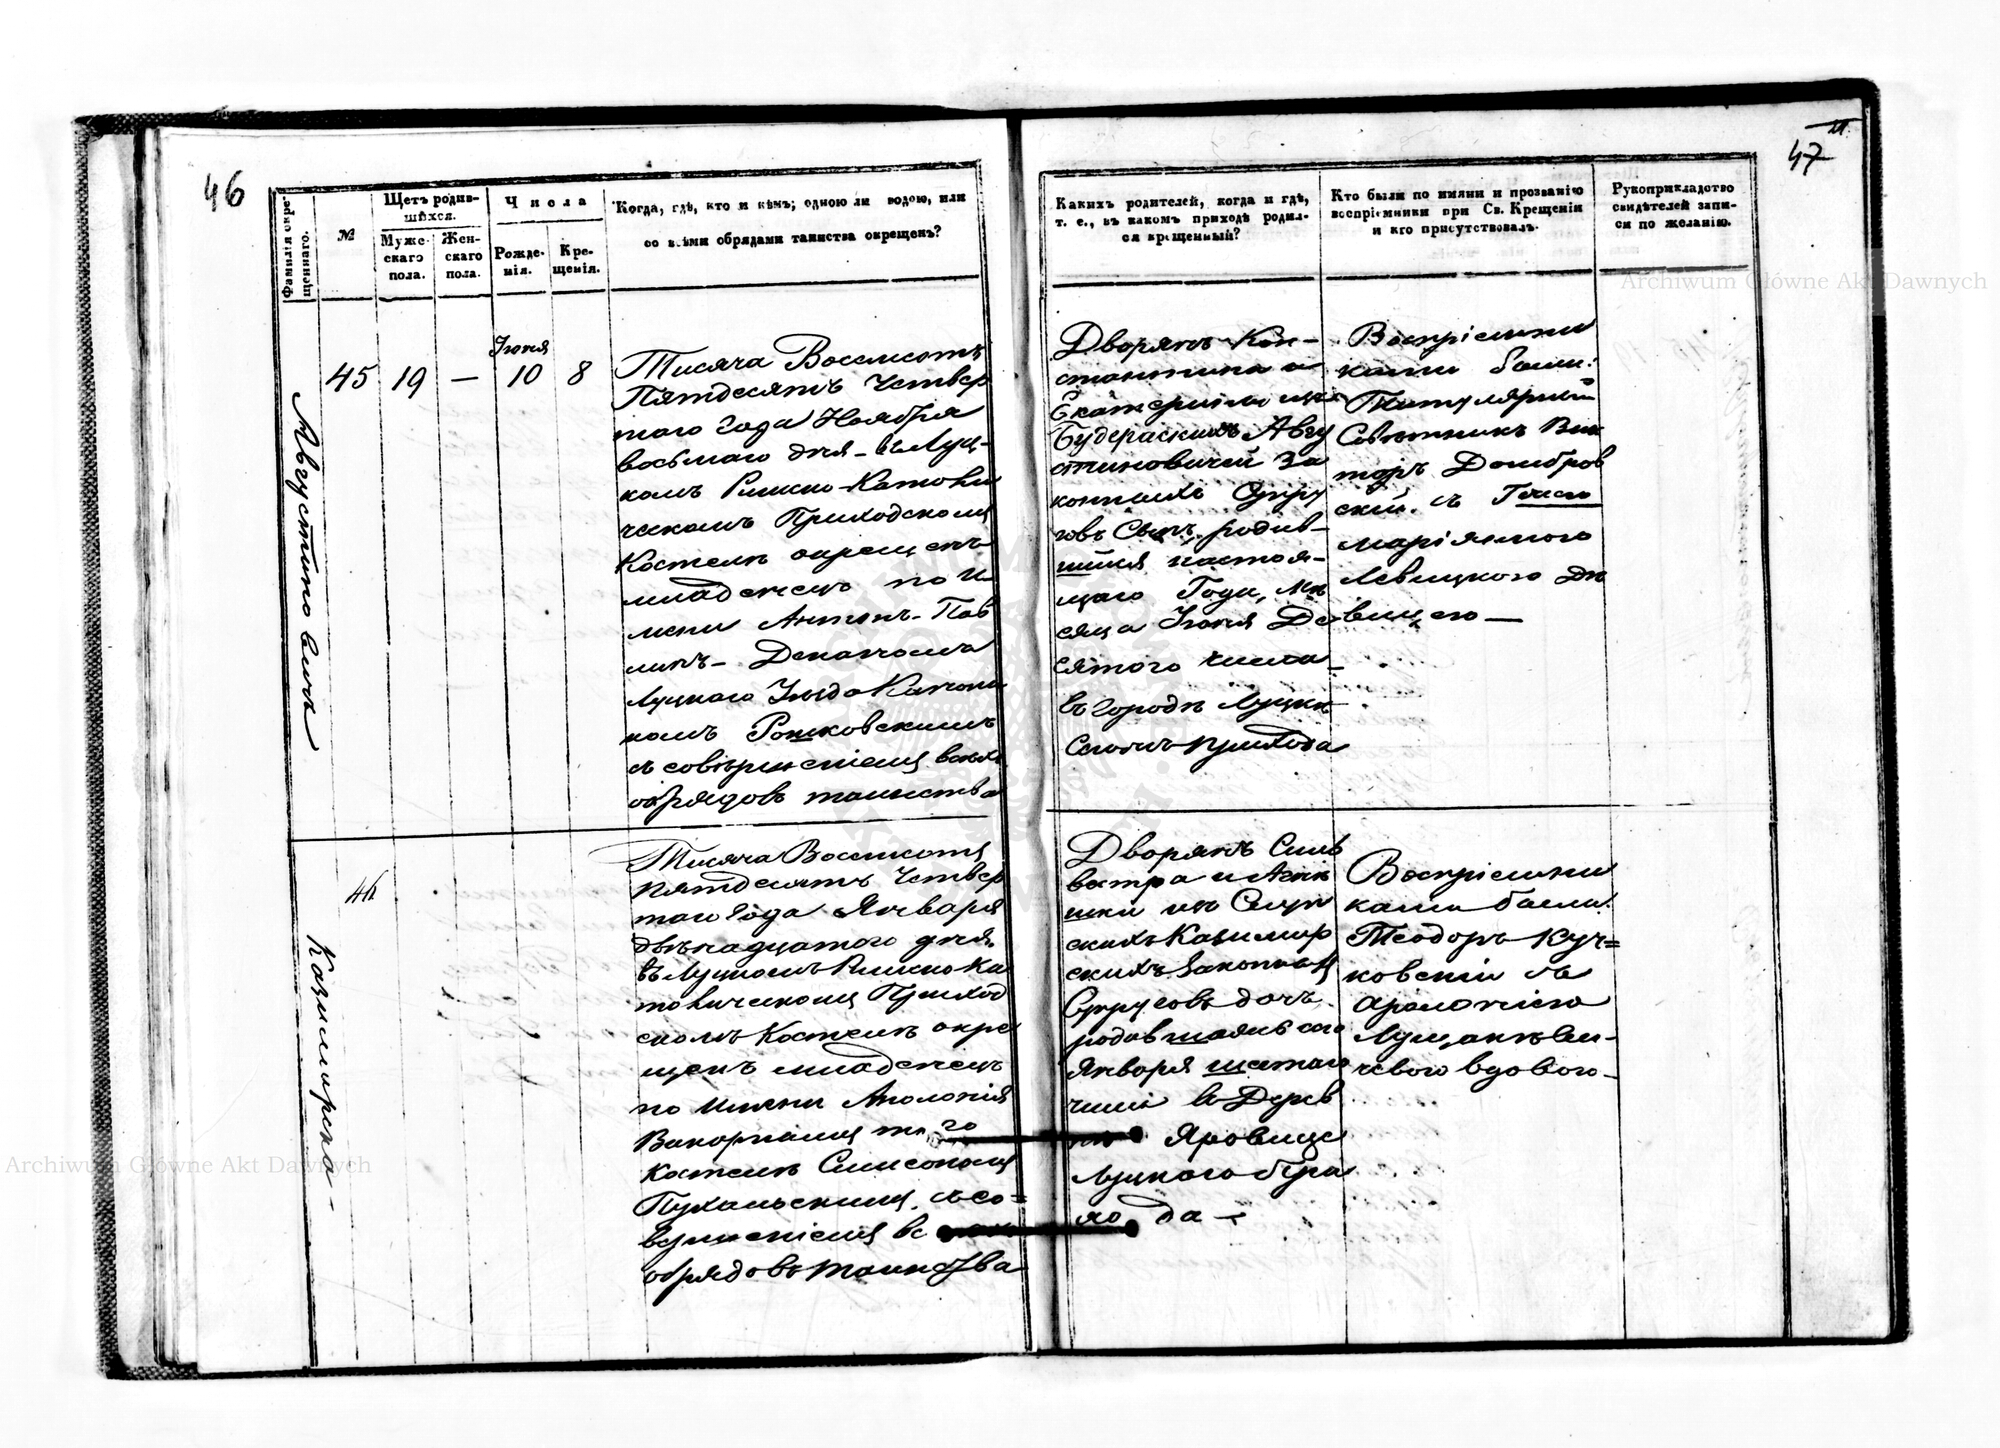 46
47
Фамилия окрещеннаго.
№
Щетъ родив-
шихся.
Муже-
скаго
пола.
Жен-
скаго
пола.
Числа
Рожде-
нія.
Кре-
щенія.
Когда, гдѣ, кто и кѣмъ; одною ли водою, или
со всѣми обрядами таинства окрещенъ?
Августиновичъ
45 19 — Іюня 10 8
Тисяча Восемсотъ
Пятдесятъ Четвер
таго Года Ноября
восьмаго дня – въ Луц-
комъ Римско-Католи
ческомъ Приходскомъ
Костелѣ окрещенъ
младенецъ по И-
мени Антонъ-Пав
линъ – Деканомъ
Луцкаго Уѣзда Канони
комъ Рошковскимъ
съ совершеніемъ всѣхъ
обрядовъ таинства
46
Казимирска –
Тисяча Восемсотъ
Пятдесятъ Четвер
таго Года Января
двѣнадцатого дня
въ Луцкомъ Римско Ка
толическомъ Приход
скомъ Костелѣ окре
щенъ младенецъ
по Имени Аполонія
Викаріемъ того
Костела Симеономъ
Пухальскимъ, съ со-
вершеніемъ
обрядовъ таинства
Какихъ родителей, когда и гдѣ,
т. е., въ какомъ приходѣ родил-
ся крещенный?
Кто были по имяни и прозванію
воспріемники при Св. Крещеніи
и кто присутствовалъ.
Рукоприкладство
свидѣтелей запи-
си по желанію.
Дворянъ Кон-
стантина и
Екатерины изъ
Будераскихъ Авгу
стиновичей За
конныхъ Супру
говъ Сынъ, родив-
шійся настоя-
щаго Года, Мѣ
сяца Іюня Де
сятого числа –
въ Городѣ Луцкѣ
Самомъ прихода
Воспріемни
ками были:
Титулярный
Совѣтникъ Вик
торъ Домбров
скій. съ Госпо
Маріянною
Левицкого Дѣ
вицею —
Дворянъ Силь
вестра и Анѣ
ки изъ
скихъ Казимир
скихъ Законныхъ
Супруговъ дочь.
родившаяся сего
Января шестаго
числа въ Дерев
нѣ Яровице
Луцкого
да –
Воспріемни
ками были:
Теодоръ Куч=
ковскій съ
Аполоніею
чевого вдовою –
Archiwum Główne Akt Dawnych
Archiwum Główne Akt Dawnych